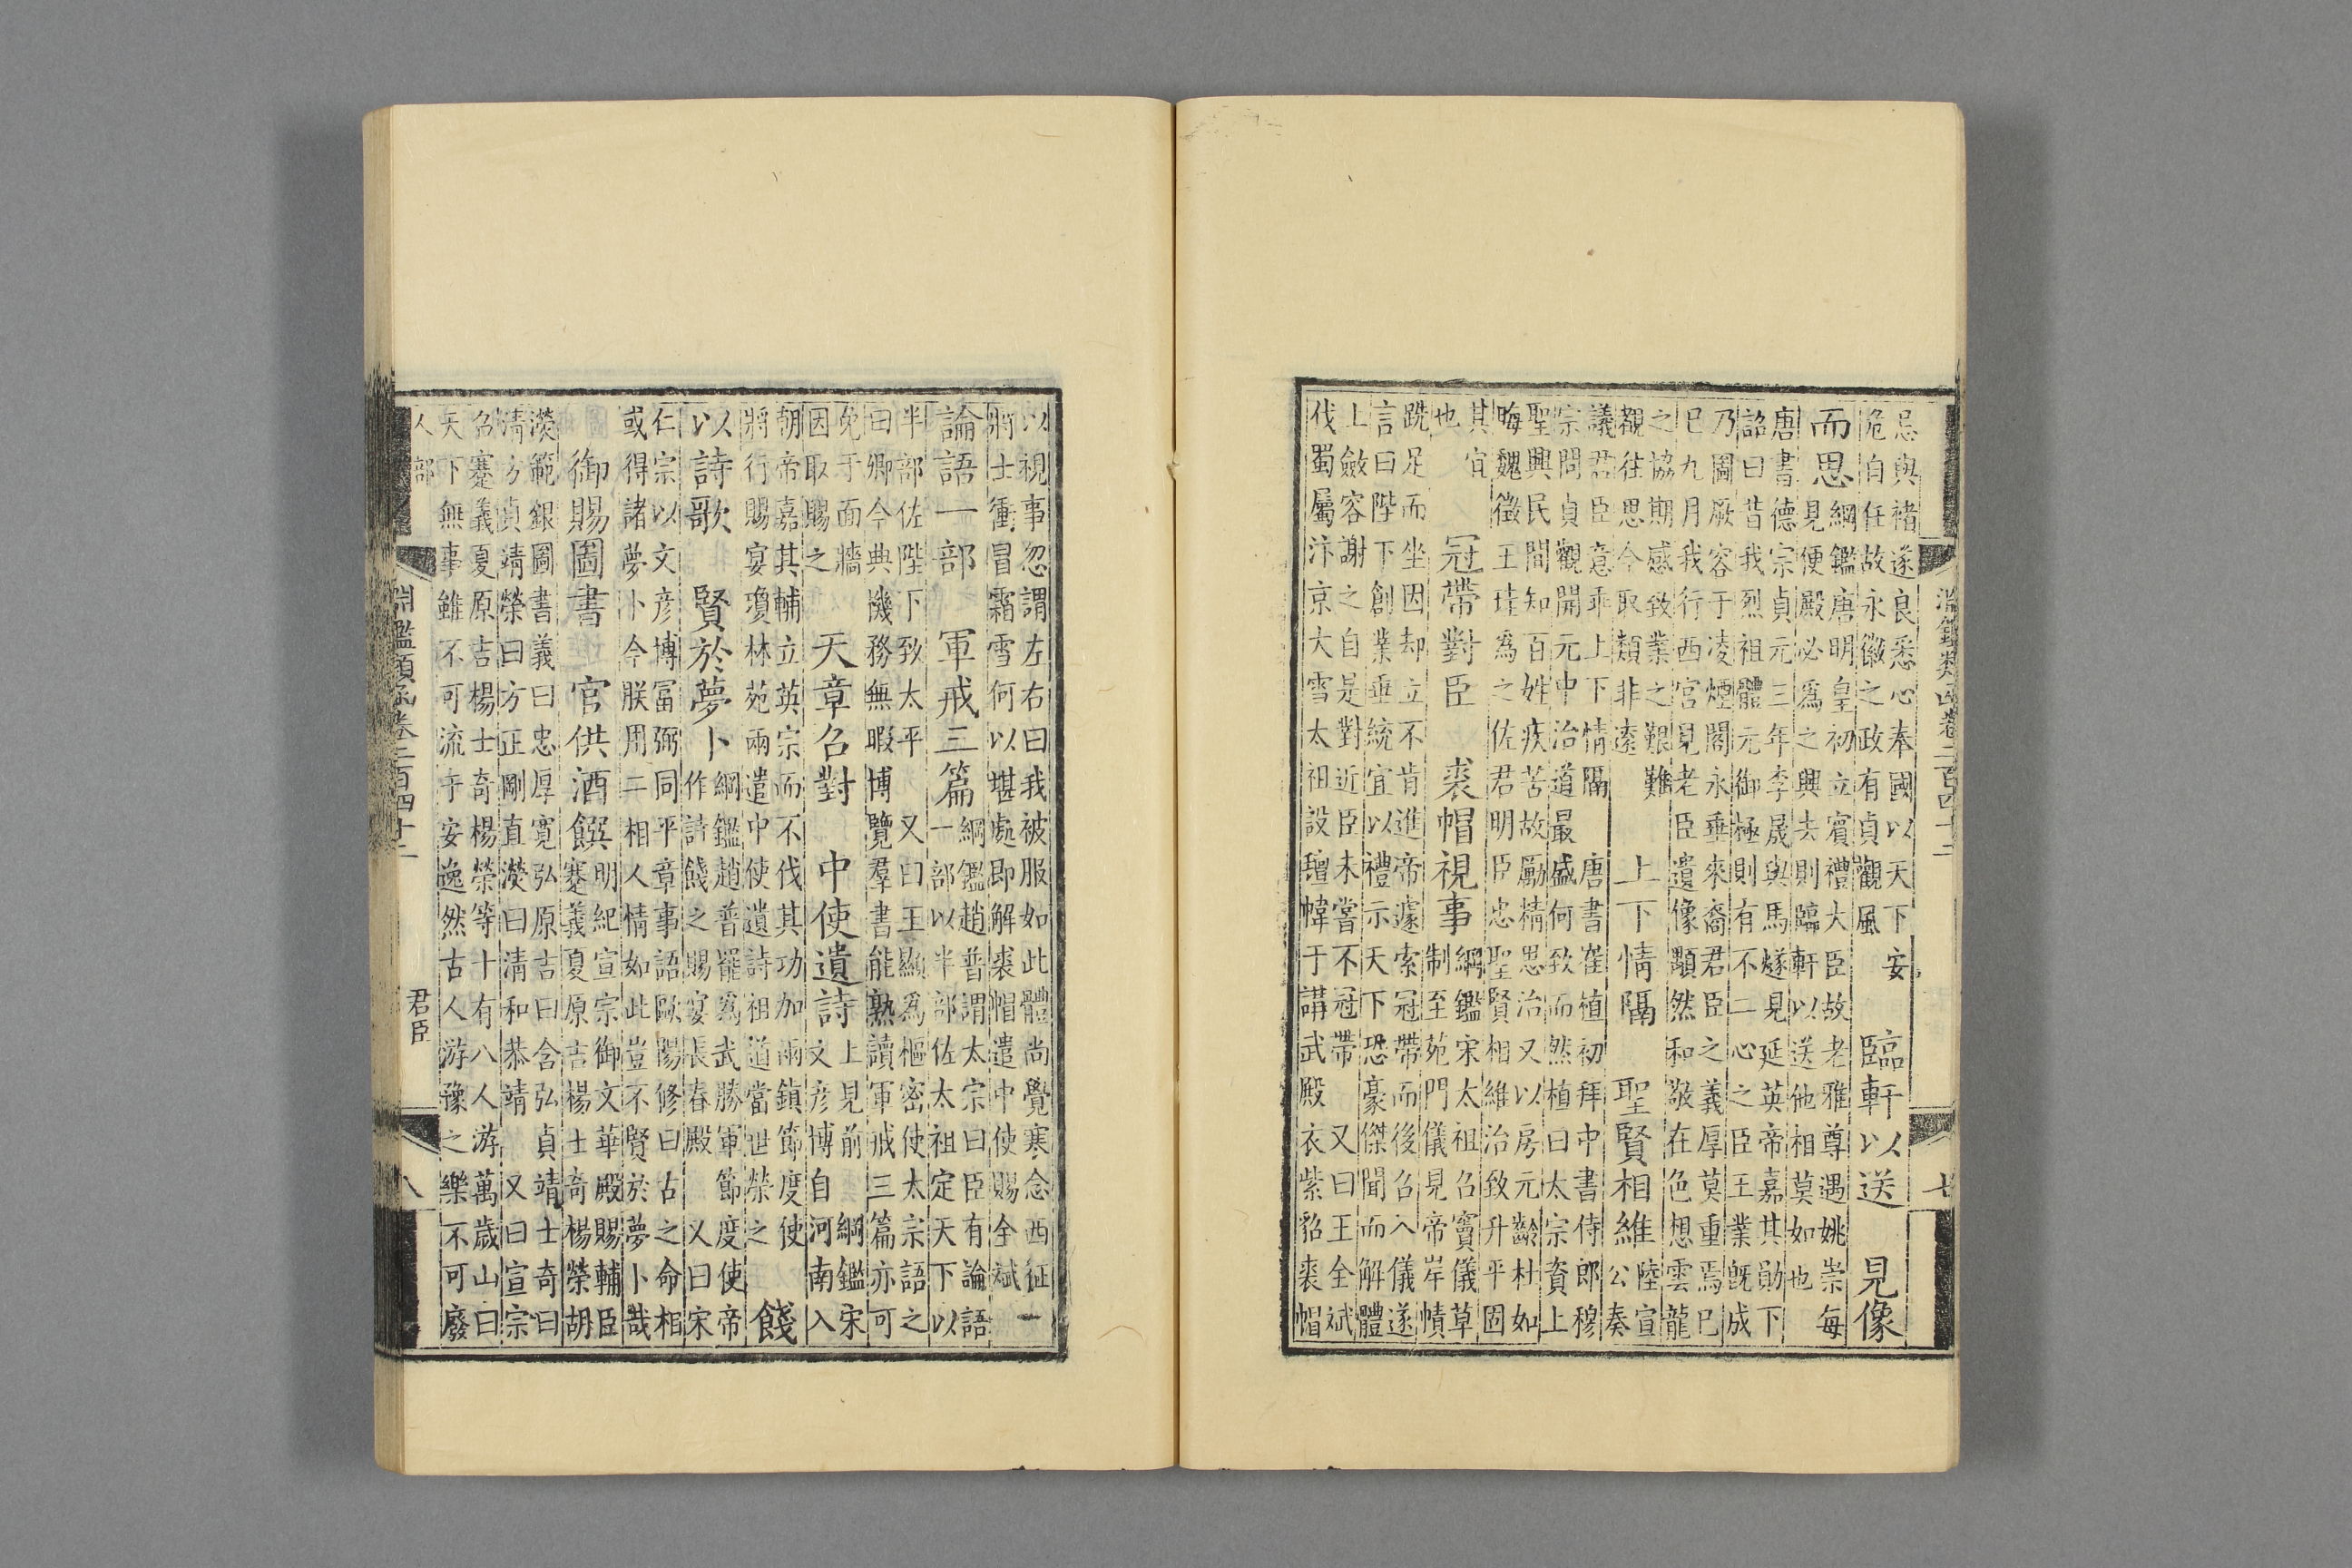 淵鑑類函卷二百四十二 七
忌與褚遂良悉心奉國以天下安
危自任故永徽之政有貞觀風
臨軒以送 見像
而思
綱鑑唐明皇初立賓禮大臣故老雅尊遇姚崇每
見便殿必爲之興去則臨軒以送他相莫如也
唐書德宗貞元三年李晟與馬燧見延英帝嘉其勛下
詔曰昔我烈祖體元御極則有不二心之臣王業旣成
乃圖厥容于凌煙閣永垂來裔君臣之義厚莫重焉已
巳九月我行西宮見老臣遺像顒然和敬在色想雲龍
之協期感致業之艱難
覩往思今取類非遠
上下情隔 聖賢相維
陸宣
公奏
議君臣意乖上下情隔 唐書崔植初拜中書侍郎穆
宗問貞觀開元中治道最盛何致而然植曰太宗資上
聖興民間知百姓疾苦故厲精思治又以房元齡杜如
晦魏徵王珪爲之佐君明臣忠聖賢相維治致升平固
其宜
也
冠帶對臣 裘帽視事
綱鑑宋太祖召竇儀草
制至苑門儀見帝岸幘
跣足而坐因却立不肯進帝遽索冠帶而後召入儀遂
言曰陛下創業垂統宜以禮示天下恐豪傑聞而解體
上斂容謝之自是對近臣未嘗不冠帶 又曰王全斌
伐蜀屬汴京大雪太祖設氊幃于講武殿衣紫貂裘帽
以視事忽謂左右曰我被服如此體尚覺寒念西征一
將士衝冒霜雪何以堪處卽解裘帽遣中使賜全斌
論語一部 軍戒三篇
綱鑑趙普謂太宗曰臣有論語
一部以半部佐太祖定天下以
半部佐陛下致太平 又曰王顯爲樞密使太宗語之
曰卿今典機務無暇博覽羣書能熟讀軍戒三篇亦可
免于面牆
因取賜之
天章召對 中使遺詩
上見前 綱鑑宋
文彦博自河南入
朝帝嘉其輔立英宗而不伐其功加兩鎮節度使
將行賜宴瓊林苑兩遣中使遺詩祖道當世榮之
餞
以詩歌 賢於夢卜
綱鑑趙普罷爲武勝軍節度使帝
作詩餞之賜宴長春殿 又曰宋
仁宗以文彦博富弼同平章事語歐陽修曰古之命相
或得諸夢卜今朕用二相人情如此豈不賢於夢卜哉
御賜圖書 官供酒饌
明紀宣宗御文華殿賜輔臣
蹇義夏原吉楊士奇楊榮胡
濙範銀圖書義曰忠厚寬弘原吉曰含弘貞靖士奇曰
淸方貞靖榮曰方正剛直濙曰淸和恭靖 又曰宣宗
召蹇義夏原吉楊士奇楊榮等十有八人游萬歲山曰
天下無事雖不可流于安逸然古人游豫之樂不可廢
人部 淵鑑類函卷二百四十二 君臣 八